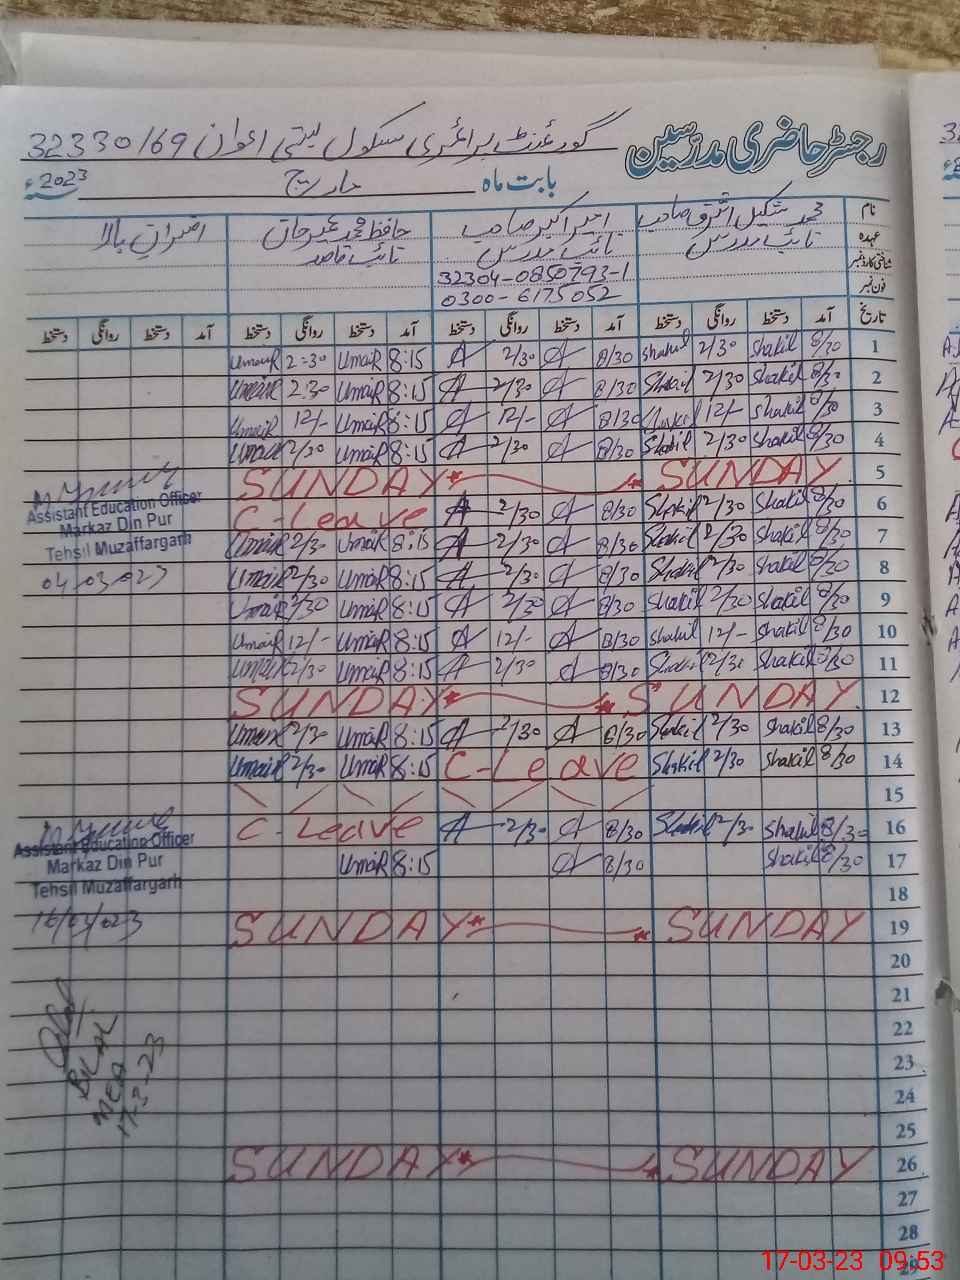 رجسٹر حاضری مدرسین
گورنمنٹ پرائمری سکول لیٹی اعوان 32330169
بابت ماہ مارچ 2023ء
نام محمد شکیل اشرف صاحب امیر اکبر صاحب حافظ محمد عمیر خان افسران بالا
عہدہ نائب مدرس نائب مدرس نائب قاصد
شناختی کارڈ نمبر 32304-0850793-1
فون نمبر 0300-6175052
تاریخ آمد دستخط روانگی دستخط آمد دستخط روانگی دستخط آمد دستخط روانگی دستخط آمد دستخط روانگی دستخط
Umair 2:30 Umair 8:15 A 2/30 A 8/30 Shakil 2/30 Shakil 8/30 1
Umair 2:30 Umair 8:15 A 2/30 A 8/30 Shakil 2/30 Shakil 8/30 2
Umair 12/- Umair 8:15 A 12/- A 8/30 Shakil 12/- Shakil 8/30 3
Umair 2/30 Umair 8:15 A 2/30 A 8/30 Shakil 2/30 Shakil 8/30 4
SUNDAY SUNDAY 5
Assistant Education Officer
Markaz Din Pur
Tehsil Muzaffargarh
04-03-023
C-Leave A 2/30 A 8/30 Shakil 2/30 Shakil 8/30 6
Umair 2/30 Umair 8:15 A 2/30 A 8/30 Shakil 2/30 Shakil 8/30 7
Umair 2/30 Umair 8:15 A 2/30 A 8/30 Shakil 2/30 Shakil 8/30 8
Umair 2/30 Umair 8:15 A 2/30 A 8/30 Shakil 2/30 Shakil 8/30 9
Umair 12/- Umair 8:15 A 12/- A 8/30 Shakil 12/- Shakil 8/30 10
Umair 2/30 Umair 8:15 A 2/30 A 8/30 Shakil 2/30 Shakil 8/30 11
SUNDAY SUNDAY 12
Umair 2/30 Umair 8:15 A 2/30 A 8/30 Shakil 2/30 Shakil 8/30 13
Umair 2/30 Umair 8:15 C-Leave Shakil 2/30 Shakil 8/30 14
15
C-Leave A 2/30 A 8/30 Shakil 2/30 Shakil 8/30 16
Assistant Education Officer
Markaz Din Pur
Tehsil Muzaffargarh
16/03/023
Umair 8:15 A 8/30 Shakil 8/30 17
18
SUNDAY SUNDAY 19
20
21
22
23
24
25
BILAL
MEA
17-3-23
SUNDAY SUNDAY 26
27
28
29
17-03-23 09:53